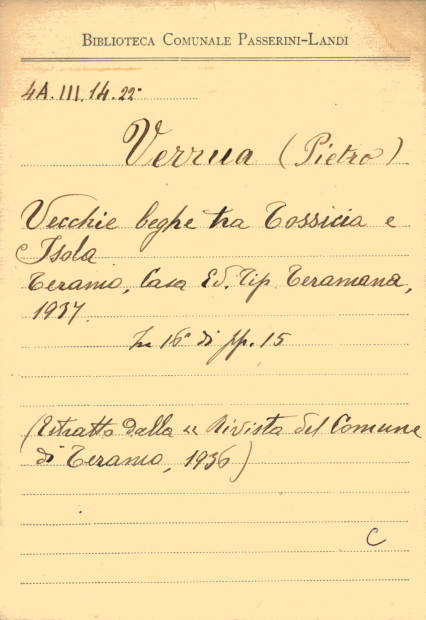 BIBLIOTECA COMUNALE PASSERINI-LANDI
4A.III.14.22°
Verrua (Pietro)
Vecchie beghe tra Tossicia e
Isola
Teramo, Casa Ed. Tip Teramana,
1937.
In 16° di pp. 15
(Estratto dalla « Rivista del Comune
di Teramo, 1936)
C